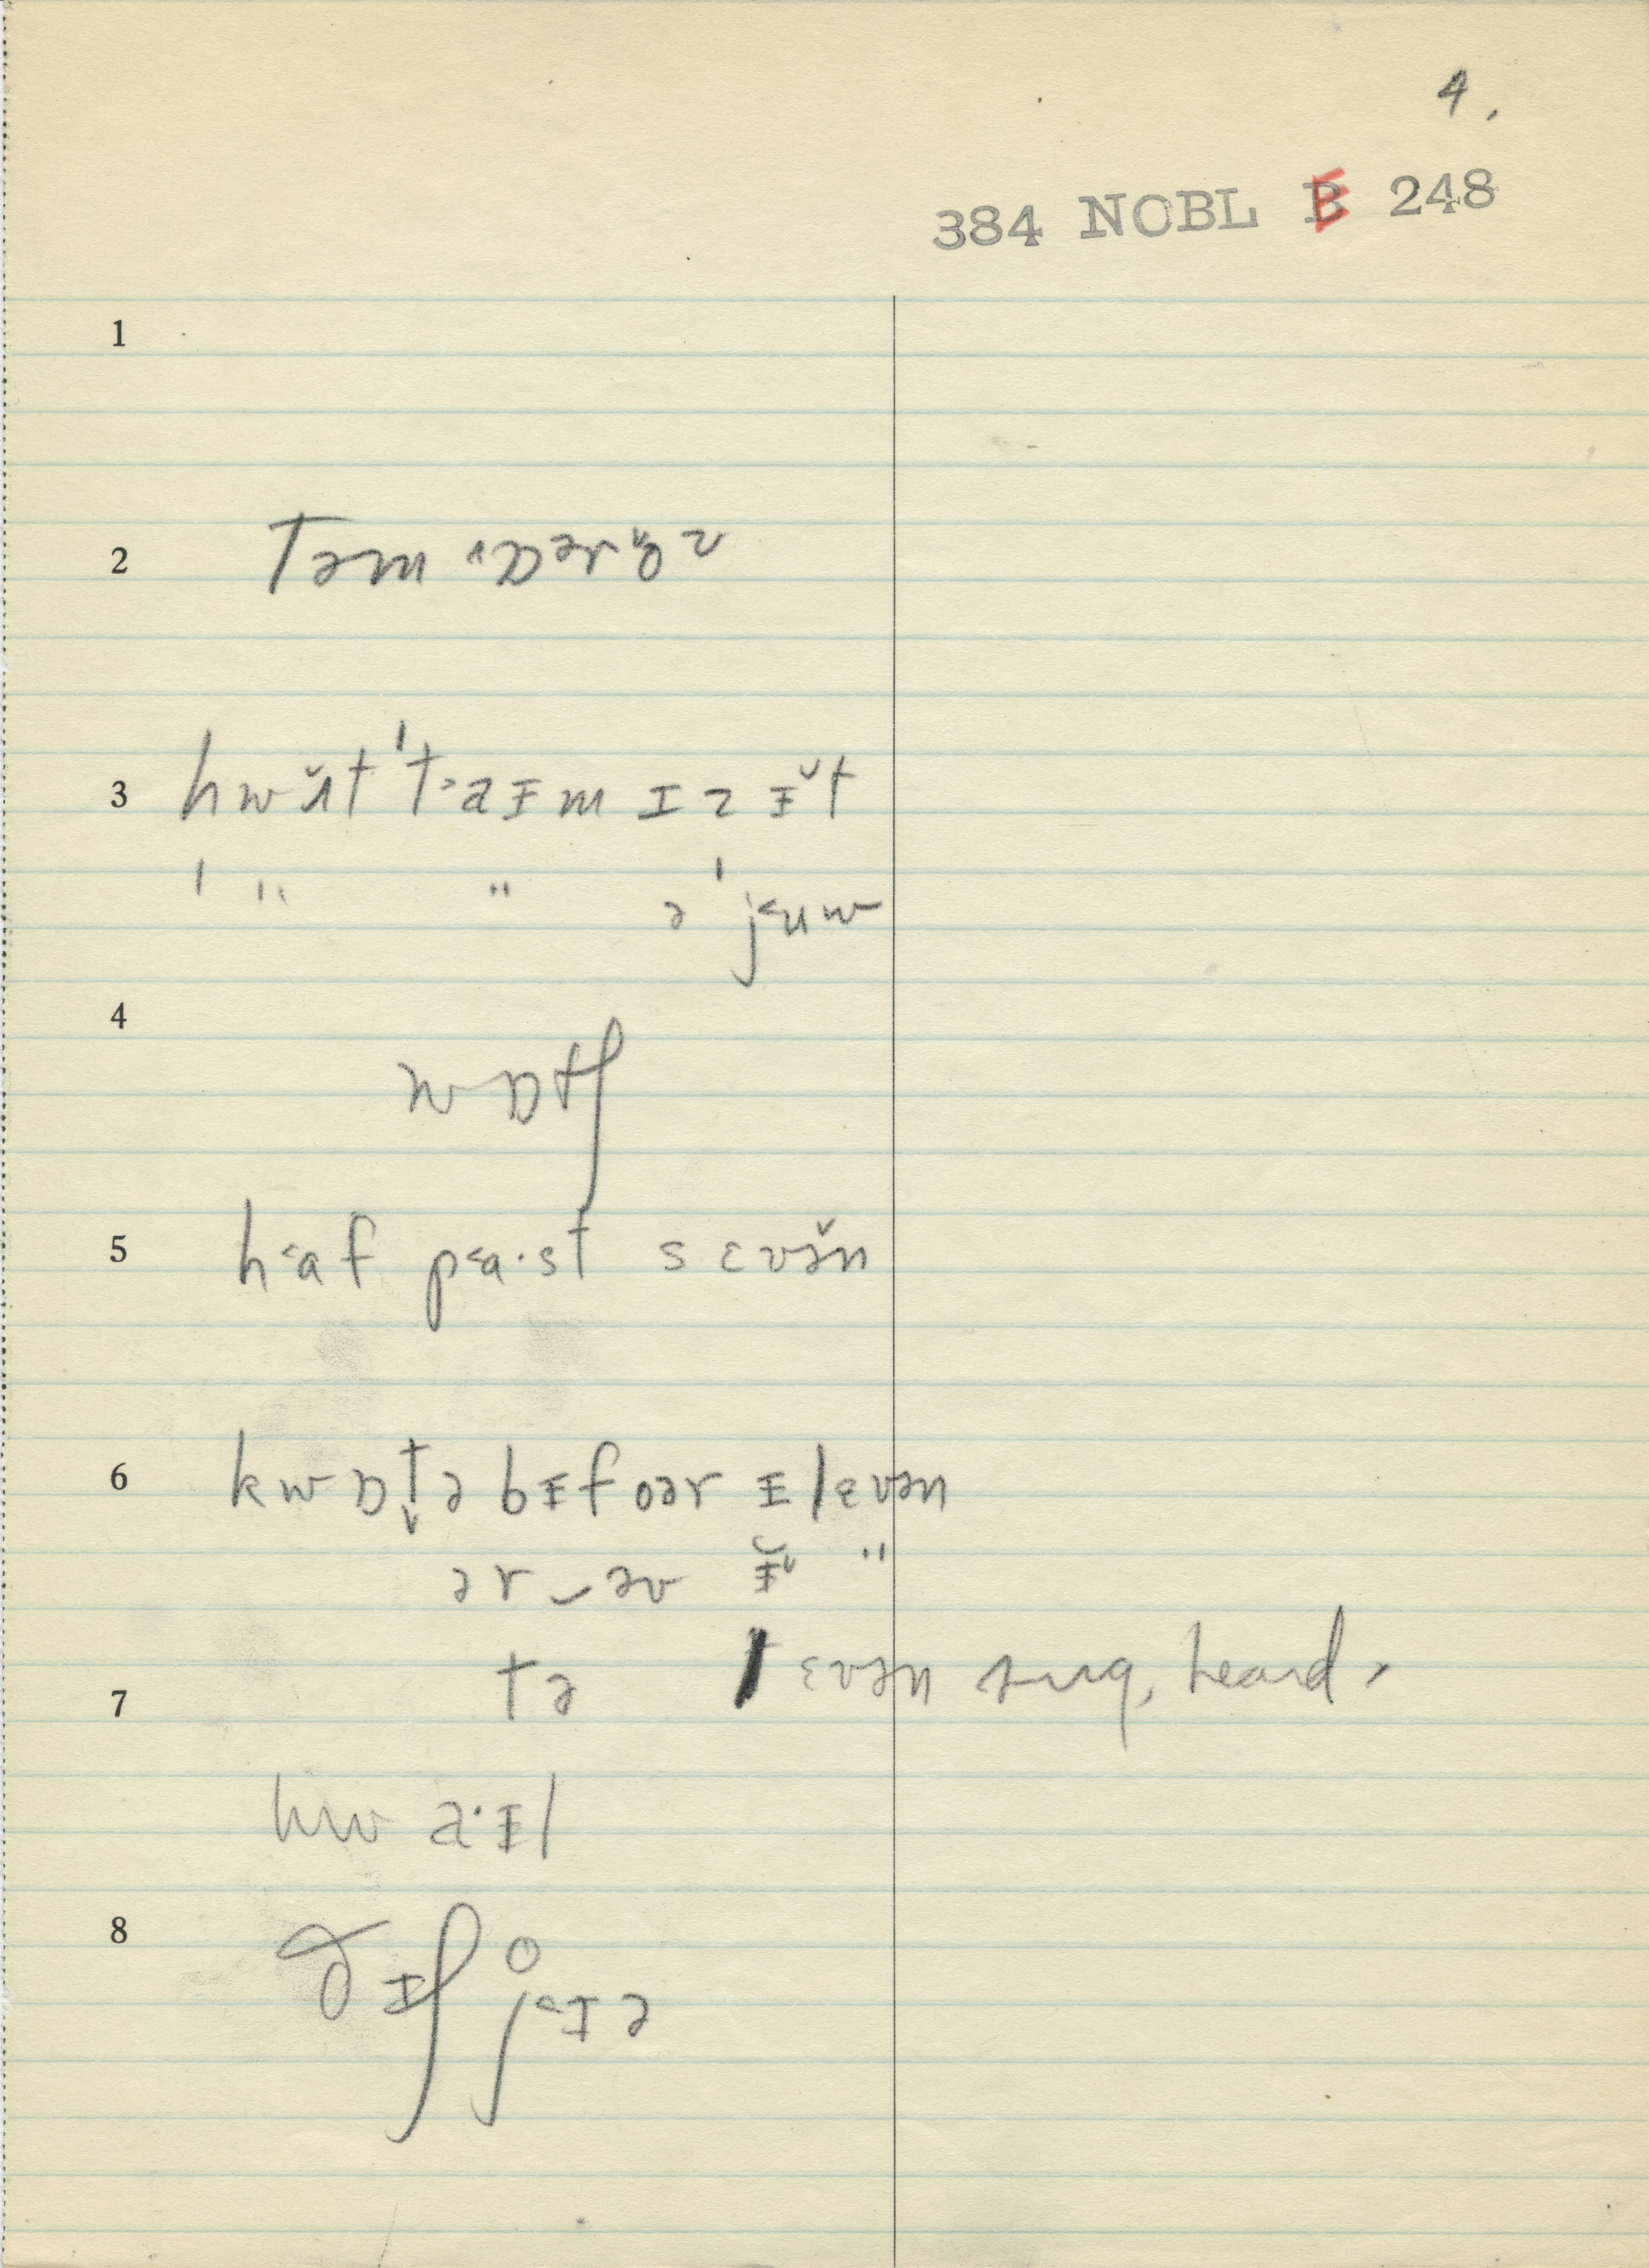 4.
384 NOBL E 248
1
2 Təm ˈɒərəz
3 hwʌ̆t ˈt˃aɪm ɪz ɪ̆t
ˈ " " ə ˈj˂uw
4
wɒtʃ
5 h˂af p˂a·st sɛvə̆n
6 kwɒt̬ə bɪfoər ɪlɛvən
ər‿əv ɪ̆ "
7 tə ɛvən sug, heard,
hw a·ɪl
8 ðɪʃ j˂ɪə